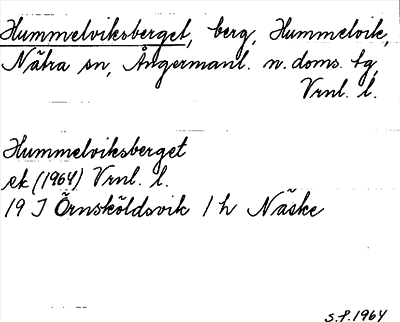 Hummelviksberget, berg, Hummelvik,
Nätra sn, Ångermanl. n. doms. tg,
Vrnl. l.
Hummelviksberget
ek (1964) Vrnl. l.
19 J Örnsköldsvik 1 h Näske
S.f. 1964